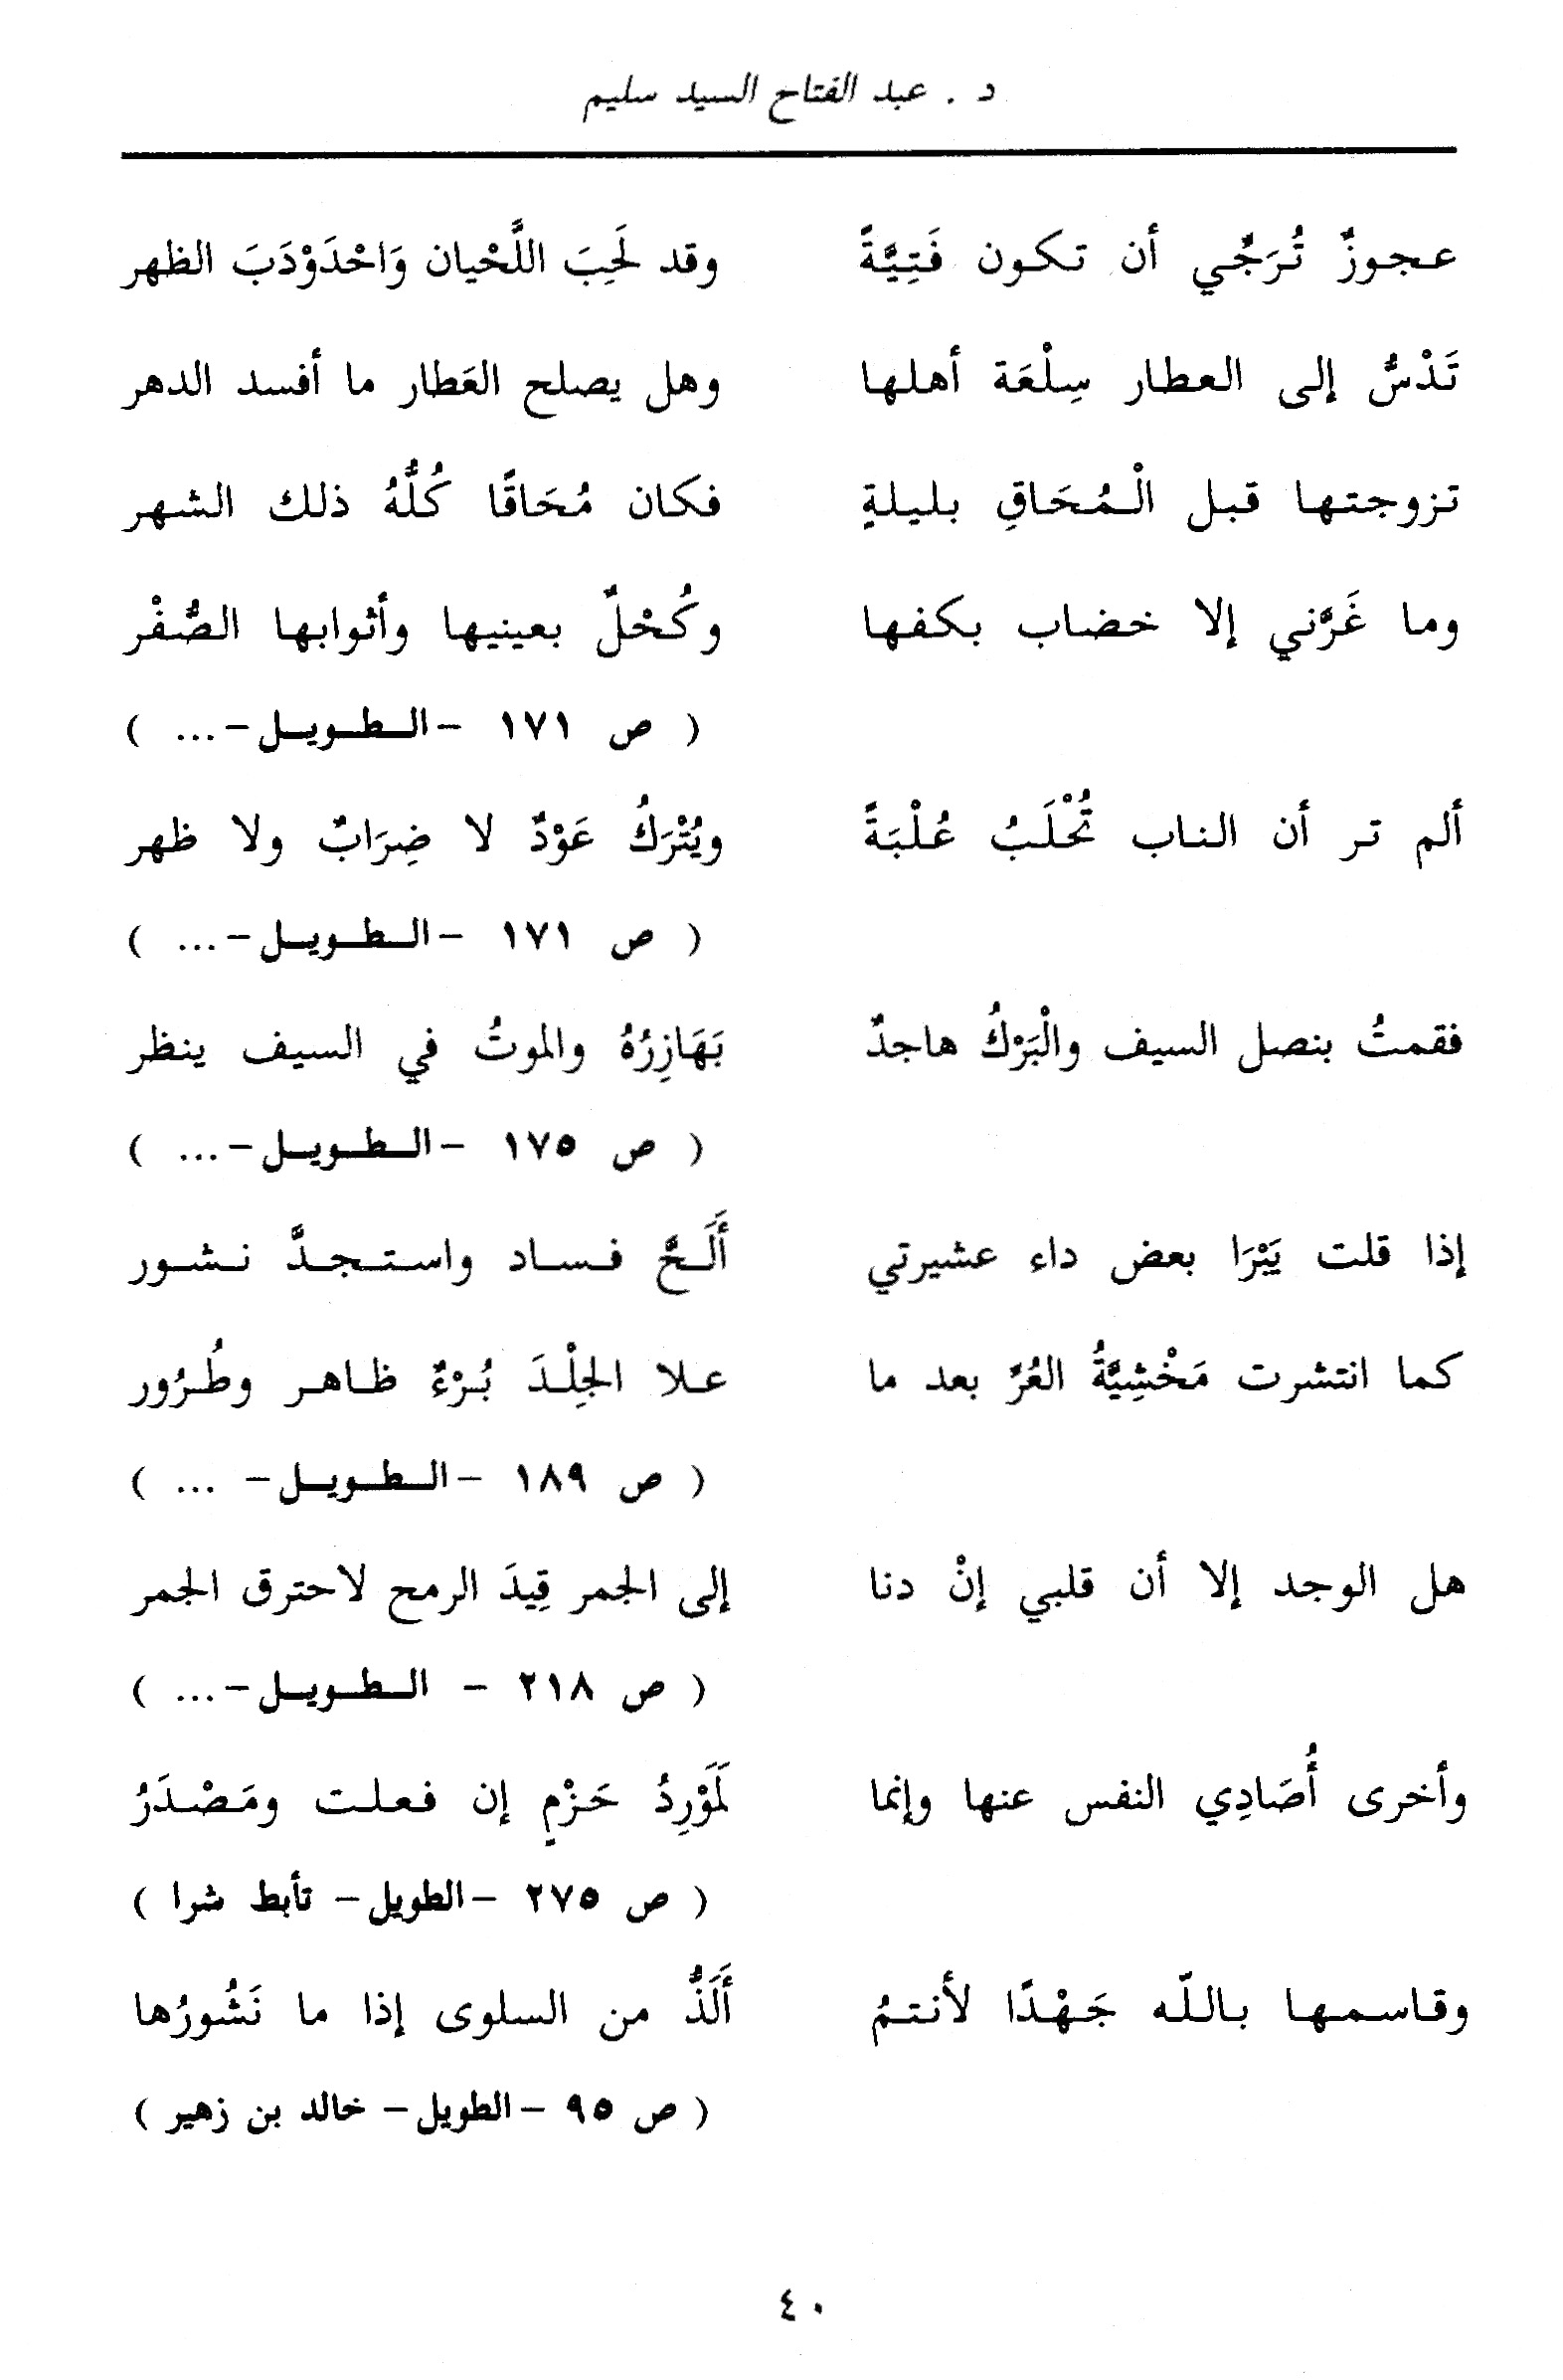 د . عبد الفتاح السيد سليم
عجوزٌ تُرَجِّي أن تكون فَتِيَّةً وقد لَحِبَ اللَّحْيان وَاحْدَوْدَبَ الظهر
تَدْسُّ إلى العطار سِلْعَة أهلها وهل يصلح العَطار ما أفسد الدهر
تزوجتها قبل الْمُحَاقِ بليلةٍ فكان مُحَاقًا كُلُّهُ ذلك الشهر
وما غَرَّني إلا خضاب بكفها وكُحْلٌ بعينيها وأثوابها الصُّفْر
( ص ١٧١ -الطويل-... )
ألم تر أن الناب تُحْلَبُ عُلْبَةً ويُتْرَكُ عَوْدٌ لا ضِرَابٌ ولا ظهر
( ص ١٧١ -الطويل-... )
فقمتُ بنصل السيف والْبَرْكُ هاجدٌ بَهَازِرُهُ والموتُ في السيف ينظر
( ص ١٧٥ -الطويل-... )
إذا قلت يَبْرَا بعض داء عشيرتي أَلَحَّ فساد واستجدَّ نشور
كما انتشرت مَخْشِيَّةُ العُرِّ بعد ما علا الجِلْدَ بُرْءٌ ظاهر وطُرُور
( ص ١٨٩ -الطويل- ... )
هل الوجد إلا أن قلبي إنْ دنا إلى الجمر قِيدَ الرمح لاحترق الجمر
( ص ٢١٨ - الطويل-... )
وأخرى أُصَادِي النفس عنها وإنما لَمَوْرِدُ حَزْمٍ إن فعلت ومَصْدَرُ
( ص ٢٧٥ -الطويل- تأبط شرا )
وقاسمها باللّه جَهْدًا لأنتمُ أَلَذُّ من السلوى إذا ما نَشُورُها
( ص ٩٥ -الطويل- خالد بن زهير )
٤٠